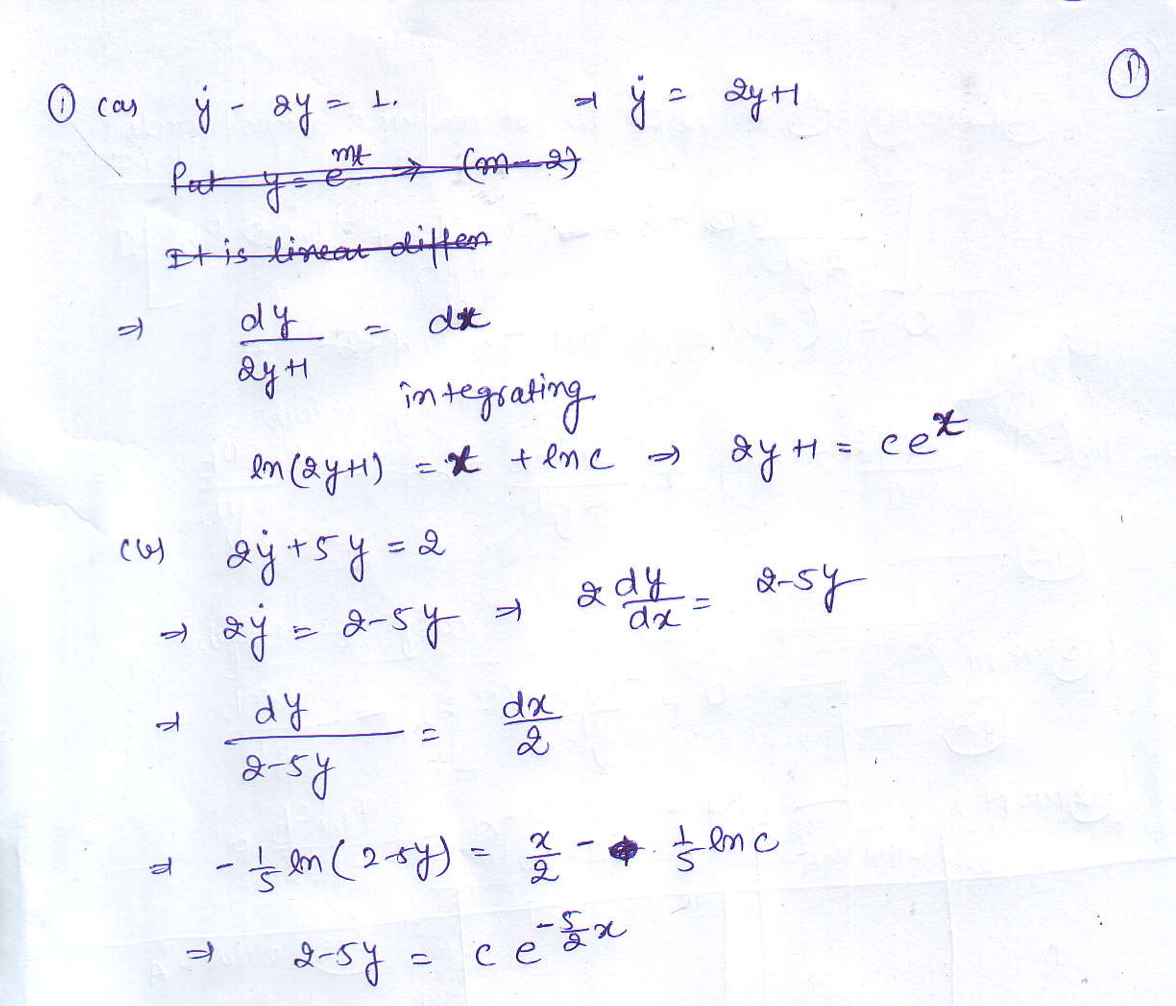 ① (a) ẏ - 2y = 1. ⇒ ẏ = 2y+1 ①
Put y = e^{mt} ⇒ (m-2)
It is linear differen
⇒ dy/(2y+1) = dx
integrating
ln(2y+1) = x + ln c ⇒ 2y+1 = ce^x
(b) 2ẏ + 5y = 2
⇒ 2ẏ = 2-5y ⇒ 2 dy/dx = 2-5y
⇒ dy/(2-5y) = dx/2
⇒ -1/5 ln(2-5y) = x/2 - 1/5 ln c
⇒ 2-5y = c e^{-5/2 x}